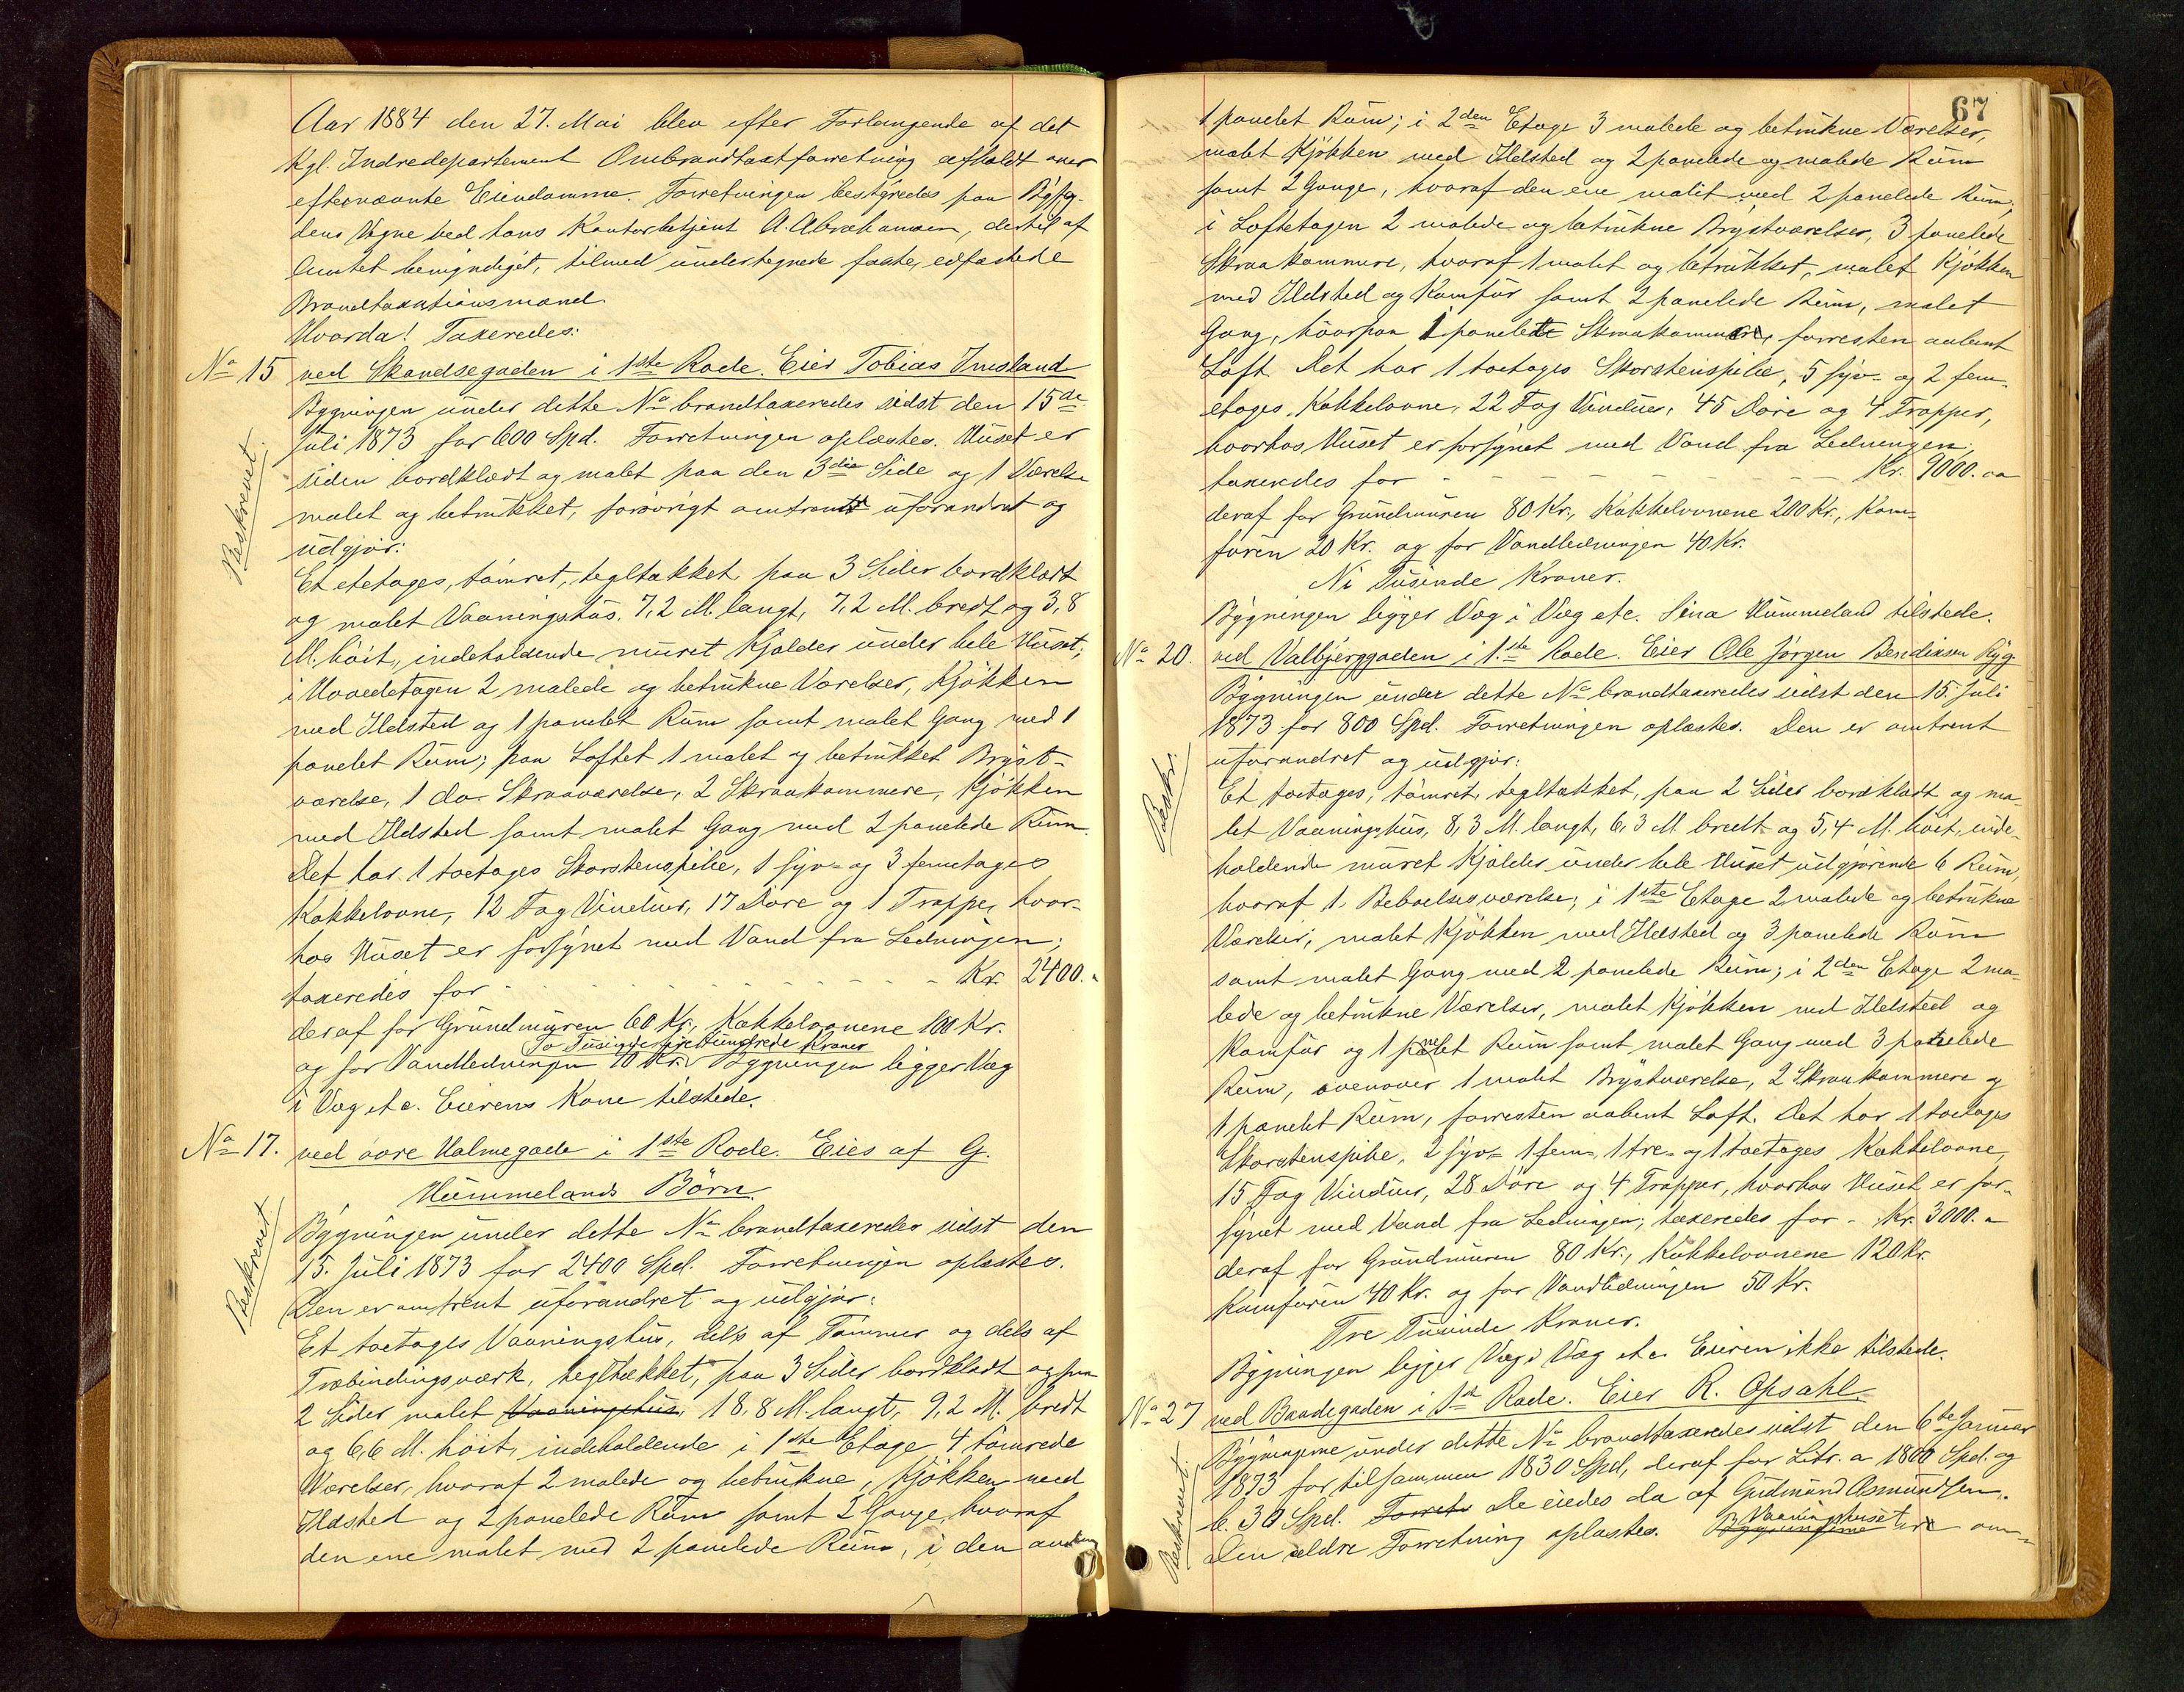 Aar 1884 den 27. Mai blev efter Forlangende af det
Kgl. Indredepartement Ombrandtaxtforretning afholdt over
efternævnte Eiendomme. Forretningen bestyredes paa Byfog-
dens Vegne ved hans Kontorbetjent A. Abrahamsen, dertil af
Amtet bemyndiget, tilmed undertegnede faste, edfæstede
Brandtaxationsmænd.
Hvorda! Taxeredes:
No 15 ved Skandsegaden i 1ste Rode. Eier Tobias Imsland
Bygningen under dette No brandtaxeredes sidst den 15de
Juli 1873 for 600 Spd. Forretningen oplæstes. Huset er
Beskrevet.
siden bordklædt og malet paa den 3die Side og 1 Værelse
malet og betrukket, forøvrigt omtrent uforandret og
udgjør:
Et etetages, tømret, tegltækket, paa 3 Sider bordklædt
og malet Vaaningshus, 7,2 M. langt, 7,2 M. bredt og 3,8
M. höit, indeholdende muret Kjælder under hele Huset;
i Hovedetagen 2 malede og betrukne Værelser, Kjøkken
med Ildsted og 1 panelet Rum samt malet Gang med 1
panelet Rum; paa Loftet 1 malet og betrukket Bryst-
værelse, 1 do. Skraaværelse, 2 Skraakammere, Kjøkken
med Ildsted samt malet Gang med 2 panelede Rum.
Det har 1 toetages Skorstenspibe, 1 syv- og 3 femetages
Kakkelovne, 12 Fag Vinduer, 17 Döre og 1 Trappe, hvor-
hos Huset er forsynet med Vand fra Ledningen;
taxeredes for - - - - - - - - Kr. 2400.-
deraf for Grundmuren 60 Kr., Kakkelovnene 100 Kr.
To Tusinde fire Hundrede Kroner
og for Vandledningen 10 Kr. Bygningen ligger Væg
i Væg etc. Eierens Kone tilstede.
No 17. ved øvre Holmegade i 1ste Rode. Eies af G.
Hummelands Börn.
Beskrevet
Bygningen under dette No brandtaxeredes sidst den
15. Juli 1873 for 2400 Spd. Forretningen oplæstes.
Den er omtrent uforandret og udgjør:
Et toetages Vaaningshus, dels af Tømmer og dels af
Træbindingsværk, tegltækket, paa 3 Sider bordklædt og paa
2 Sider malet Vaaningshus, 18,8 M. langt, 9,2 M. bredt
og 6,6 M. höit, indeholdende i 1ste Etage 4 tömrede
Værelser, hvoraf 2 malede og betrukne, Kjøkken med
Ildsted og 2 panelede Rum samt 2 Gange, hvoraf
den ene malet med 2 panelede Rum, i den anden
67
1 panelet Rum; i 2den Etage 3 malede og betrukne Værelser,
malet Kjøkken med Ildsted og 2 panelede og malede Rum
samt 2 Gange, hvoraf den ene malet med 2 panelede Rum;
i Loftetagen 2 malede og betrukne Brystværelser, 3 panelede
Skraakammere, hvoraf 1 malet og betrukket, malet Kjøkken
med Ildsted og Komfur samt 2 panelede Rum, malet
Gang, hvorpaa 1 panelet Skraakammer, forresten aabent
Loft. Det har 1 toetages Skorstenspibe, 5 syv- og 2 fem-
etages Kakkelovne, 22 Fag Vinduer, 45 Döre og 4 Trapper,
hvorhos Huset er forsynet med Vand fra Ledningen;
taxeredes for - - - - - - - Kr. 9000.-
deraf for Grundmuren 80 Kr., Kakkelovnene 200 Kr., Kom-
furen 20 Kr. og for Vandledningen 40 Kr.
Ni Tusinde Kroner.
Bygningen ligger Væg i Væg etc. Sina Hummeland tilstede.
No 20. ved Valbjerggaden i 1.ste Rode. Eier Ole Jørgen Bendiksen Ryg
Bygningen under dette No brandtaxeredes sidst den 15. Juli
1873 for 800 Spd. Forretningen oplæstes. Den er omtrent
uforandret og udgjør:
Beskr.
Et toetages, tömret, tegltækket, paa 2 Sider bordklædt og ma-
let Vaaningshus, 8,3 M. langt, 6,3 M. bredt og 5,4 M. höit, inde-
holdende muret Kjælder under hele Huset udgjørende 6 Rum,
hvoraf 1 Beboelsesværelse; i 1ste Etage 2 malede og betrukne
Værelser, malet Kjøkken med Ildsted og 3 panelede Rum
samt malet Gang med 2 panelede Rum; i 2den Etage 2 ma-
lede og betrukne Værelser, malet Kjøkken med Ildsted og
Komfur og 1 panelet Rum samt malet Gang med 3 panelede
Rum, ovenover 1 malet Brystværelse, 2 Skraakammere og
1 panelet Rum, forresten aabent Loft. Det har 1 toetages
Skorstenspibe, 2 syv- 1 fem-, 1 tre- og 1 toetages Kakkelovne,
15 Fag Vinduer, 28 Döre og 4 Trapper, hvorhos Huset er for-
synet med Vand fra Ledningen; taxeredes for - Kr. 3000.-
deraf for Grundmuren 80 Kr., Kakkelovnene 120 Kr.
Komfuren 40 Kr. og for Vandledningen 50 Kr.
Tre Tusinde Kroner.
Bygningen ligger Væg i Væg etc. Eieren ikke tilstede.
No 27 ved Baudegaden i 1st Rode. Eier R. Opsahl
Beskrevet.
Bygningerne under dette No brandtaxeredes sidst den 6te Januar
1873 for tilsammen 1830 Spd, deraf for Litr. a 1800 Spd. og
b. 30 Spd. Forret De eiedes da af Gudmund Asmundsen.
Den ældre Forretning oplæstes. Bygningerne Vaaningshuset er om-